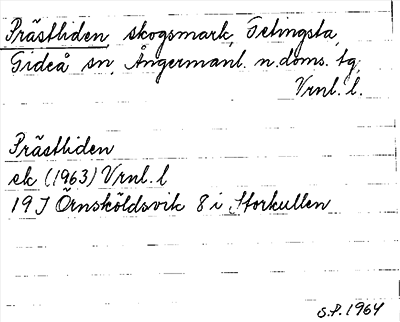 Prästliden, skogsmark, Tetingsta,
Gideå sn, Ångermanl. n. doms. tg,
Vrnl. l.
Prästliden
ek (1963) Vrnl. l
19 J Örnsköldsvik 8 i Storkullen
S.P. 1964